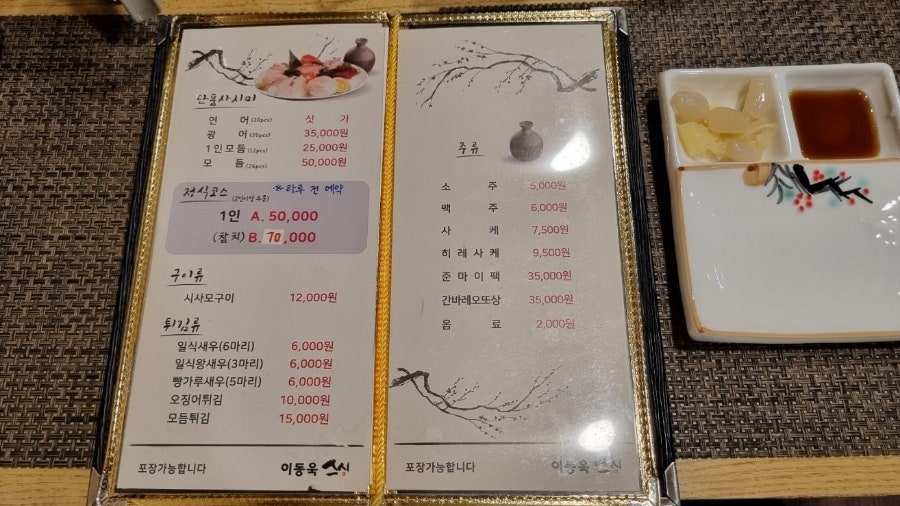 단품사시미
연 어 (20pcs) 싯 가
광 어 (20pcs) 35,000원
1인모듬 (12pcs) 25,000원
모 듬 (26pcs) 50,000원
정식코스 ※하루 전 예약
(2인이상 주문)
1인 A. 50,000
(참치) B. 70,000
구이류
시사모구이 12,000원
튀김류
일식새우(6마리) 6,000원
일식왕새우(3마리) 6,000원
빵가루새우(5마리) 6,000원
오징어튀김 10,000원
모듬튀김 15,000원
포장가능합니다 이동욱 스시
주류
소 주 5,000원
맥 주 6,000원
사 케 7,500원
히레사케 9,500원
준마이팩 35,000원
간바레오또상 35,000원
음 료 2,000원
포장가능합니다 이동욱 스시